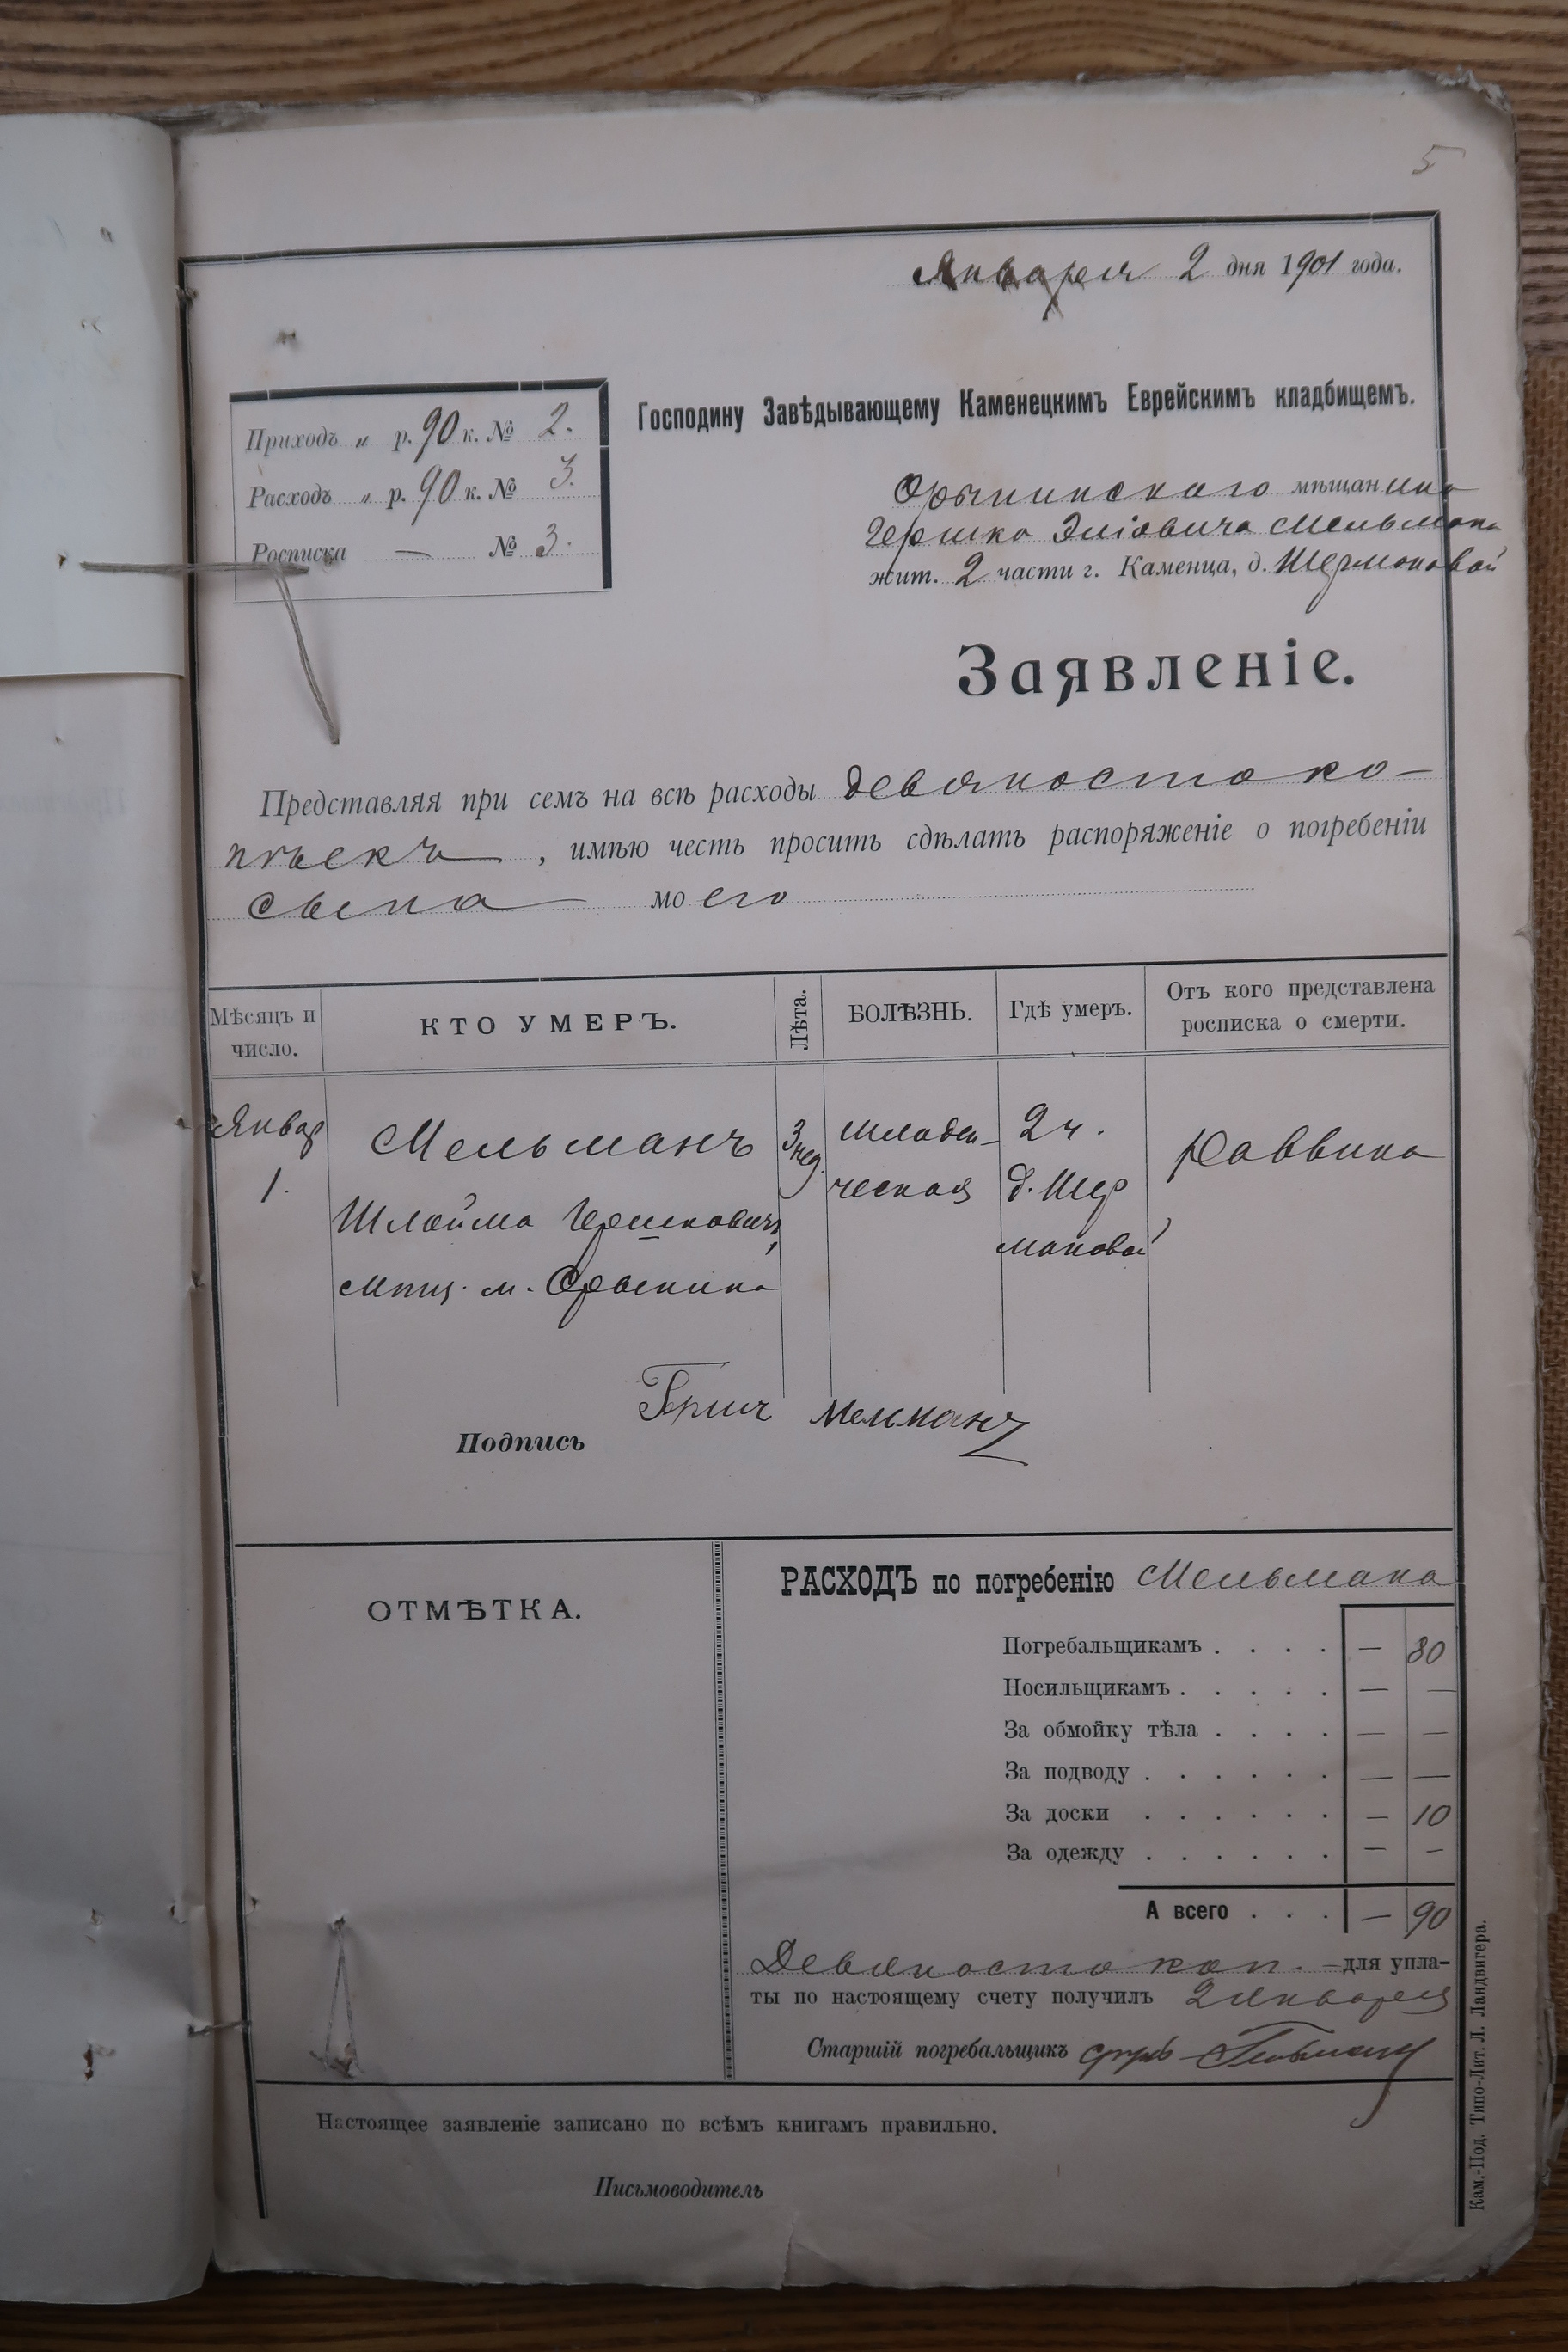 5
Января 2 дня 1901 года.
Приходъ „ р. 90 к. № 2.
Расходъ „ р. 90 к. № 3.
Росписка — № 3.
Господину Завѣдывающему Каменецкимъ Еврейскимъ кладбищемъ.
Орынинскаго мѣщанина
Гершка Эліовича Мельмана
жит. 2 части г. Каменца, д. Шермановой
Заявленіе.
Представляя при семъ на всѣ расходы девяносто ко-
пѣекъ, имѣю честь просить сдѣлать распоряженіе о погребеніи
сына моего
Мѣсяцъ и число.
КТО УМЕРЪ.
Лѣта.
БОЛѢЗНЬ.
Гдѣ умеръ.
Отъ кого представлена росписка о смерти.
Январ 1.
Мельманъ
Шлойма Гершковичъ,
мѣщ. м. Орынина
3 нед.
младен-
ческая
2 ч.
д. Шер
мановой
Раввина
Подпись Гершъ Мельманъ
ОТМѢТКА.
РАСХОДЪ по погребенію Мельмана
Погребальщикамъ . . . . — 80
Носильщикамъ . . . . . — —
За обмойку тѣла . . . . — —
За подводу . . . . . . — —
За доски . . . . . . — 10
За одежду . . . . . . — —
А всего . . . — 90
Девяносто коп. — для упла-
ты по настоящему счету получилъ 2 Января
Старшій погребальщикъ
Настоящее заявленіе записано по всѣмъ книгамъ правильно.
Письмоводитель
Кам.-Под. Типо-Лит. Л. Ландвигера.